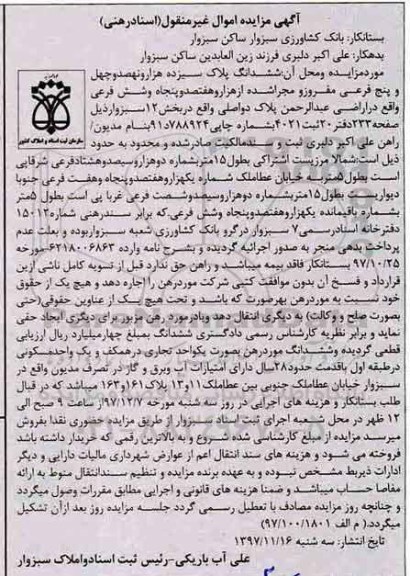 آگهی مزایده اموال غیرمنقول(اسنادرهنی)
بستانکار: بانک کشاورزی سبزوار ساکن سبزوار
بدهکار: علی اکبر دلبری فرزند زین العابدین ساکن سبزوار
موردمزایده ومحل آن:ششدانگ پلاک سیزده هزارونهصدوچهل
و پنج فرعی مفروزو مجراشده ازهزاروهفتصدوپنجاه وشش فرعی
واقع دراراضی عبدالرحمن پلاک دواصلی واقع دربخش۱۲سبزوارذیل
صفحه۲۳۳دفتر۲۰ثبت۴۰۲۱بشماره چاپی۷۸۸۹۲۴د۹۱بنام مدیون/
راهن علی اکبر دلبری ثبت و سندمالکیت صادرشده و محدود به حدود
ذیل است:شمالا مرزیست اشتراکی بطول۱۵متربشماره دوهزاروسیصدوهشتادفرعی شرقاپی
است بطول۵متربه خیابان عطاملک شماره یکهزاروهفتصدوپنجاه وهفت فرعی جنوبا
دیواریست بطول۱۵متربشماره دوهزاروسیصدوشصت فرعی غربا پی است بطول ۵متر
بشماره باقیمانده یکهزاروهفتصدوپنجاه وشش فرعی،که برابر سندرهنی شماره۱۵۰۱۲
دفترخانه اسنادرسمی۷ سبزوار درگرو بانک کشاورزی شعبه سبزواربوده و بعلت عدم
پرداخت بدهی منجر به صدور اجرائیه گردیده و بشرح نامه وارده ۶۲۱۸۰۰۶۸۶۳-مورخه
۹۷/۱۰/۲۵ بستانکار فاقد بیمه میباشد و راهن حق ندارد قبل از تسویه کامل ناشی ازین
قرارداد و فسخ آن بدون موافقت کتبی شرکت موردرهن را اجاره دهد و هیچ یک از حقوق
خود نسبت به موردرهن بهرصورت که باشد و تحت هیچ یک از عناوین حقوقی(حتی
بصورت صلح و وکالت) به دیگری انتقال دهد ویادرمورد رهن مزبور برای دیگری ایجاد حقی
نماید و برابر نظریه کارشناس رسمی دادگستری ششدانگ بمبلغ چهارمیلیارد ریال ارزیابی
قطعی گردیده وششدانگ موردرهن بصورت یکواحد تجاری درهمکف و یک واحدمسکونی
درطبقه اول باقدمت حدود۲۸سال دارای امتیازات آب وبرق و گاز در تصرف مدیون واقع در
سبزوار خیابان عطاملک جنوبی بین عطاملک۱۱و۱۳ پلاک۱۶۱و۱۶۳ میباشد که در قبال
طلب بستانکار و هزینه های اجرایی در روز سه شنبه مورخه ۹۷/۱۲/۷از ساعت ۹ صبح الی
۱۲ ظهر در محل شعبه اجرای ثبت اسناد سبزوار از طریق مزایده حضوری نقدا بفروش
میرسد مزایده از مبلغ کارشناسی شده شروع و به بالاترین قیمت که خریدار داشته باشد
فروخته می شود و هزینه های سند انتقال اعم از عوارض شهرداری مالیات دارایی و دیگر
ادارات ذیربط مشخص نبوده و به عهده برنده مزایده و تنظیم سندانتقال منوط به ارائه
مفاصا حساب میباشد و ضمنا هزینه های قانونی و اجرایی مطابق مقررات وصول میگردد
و چنانچه روز مزایده مصادف با تعطیل رسمی گردد جلسه مزایده روز بعد ازآن تشکیل
میگردد.( م الف ۹۷/۱۰۰/۱۸۰۱)
تاریخ انتشار: سه شنبه ۱۳۹۷/۱۱/۱۶
علی آب باریکی-رئیس ثبت اسنادواملاک سبزوار
سازمان ثبت اسناد و املاک کشور